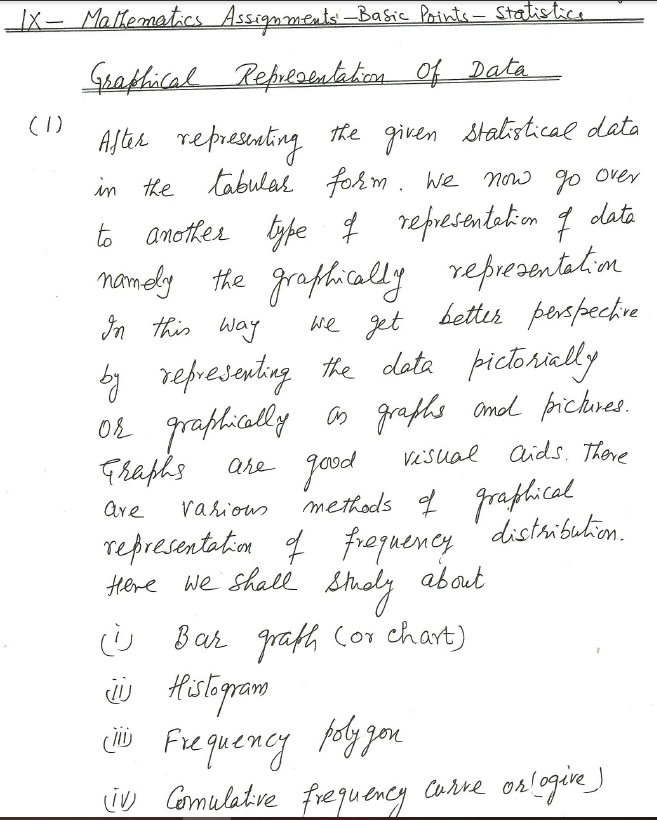 IX - Mathematics Assignments - Basic Points - Statistics
Graphical Representation Of Data
(1) After representing the given statistical data
in the tabular form. We now go over
to another type of representation of data
namely the graphically representation
In this way we get better perspective
by representing the data pictorially
or graphically as graphs and pictures.
Graphs are good visual aids. There
are various methods of graphical
representation of frequency distribution.
Here we shall study about
(i) Bar graph (or chart)
(ii) Histogram
(iii) Frequency polygon
(iv) Comulative frequency curve or (ogive)